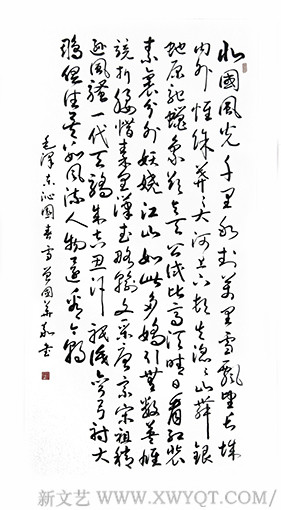 北國風光千里冰封萬里雪飄望長城
内外惟餘莽莽大河上下頓失滔滔山舞銀
蛇原馳蠟象欲與天公試比高須晴日看紅裝
素裹分外妖嬈江山如此多嬌引無數英雄
競折腰惜秦皇漢武略輸文采唐宗宋祖稍
遜風騷一代天驕成吉思汗祇識彎弓射大
鵰俱往矣數風流人物還看今朝
毛澤東沁園春雪 書
新文艺 WWW.XWYQT.COM/